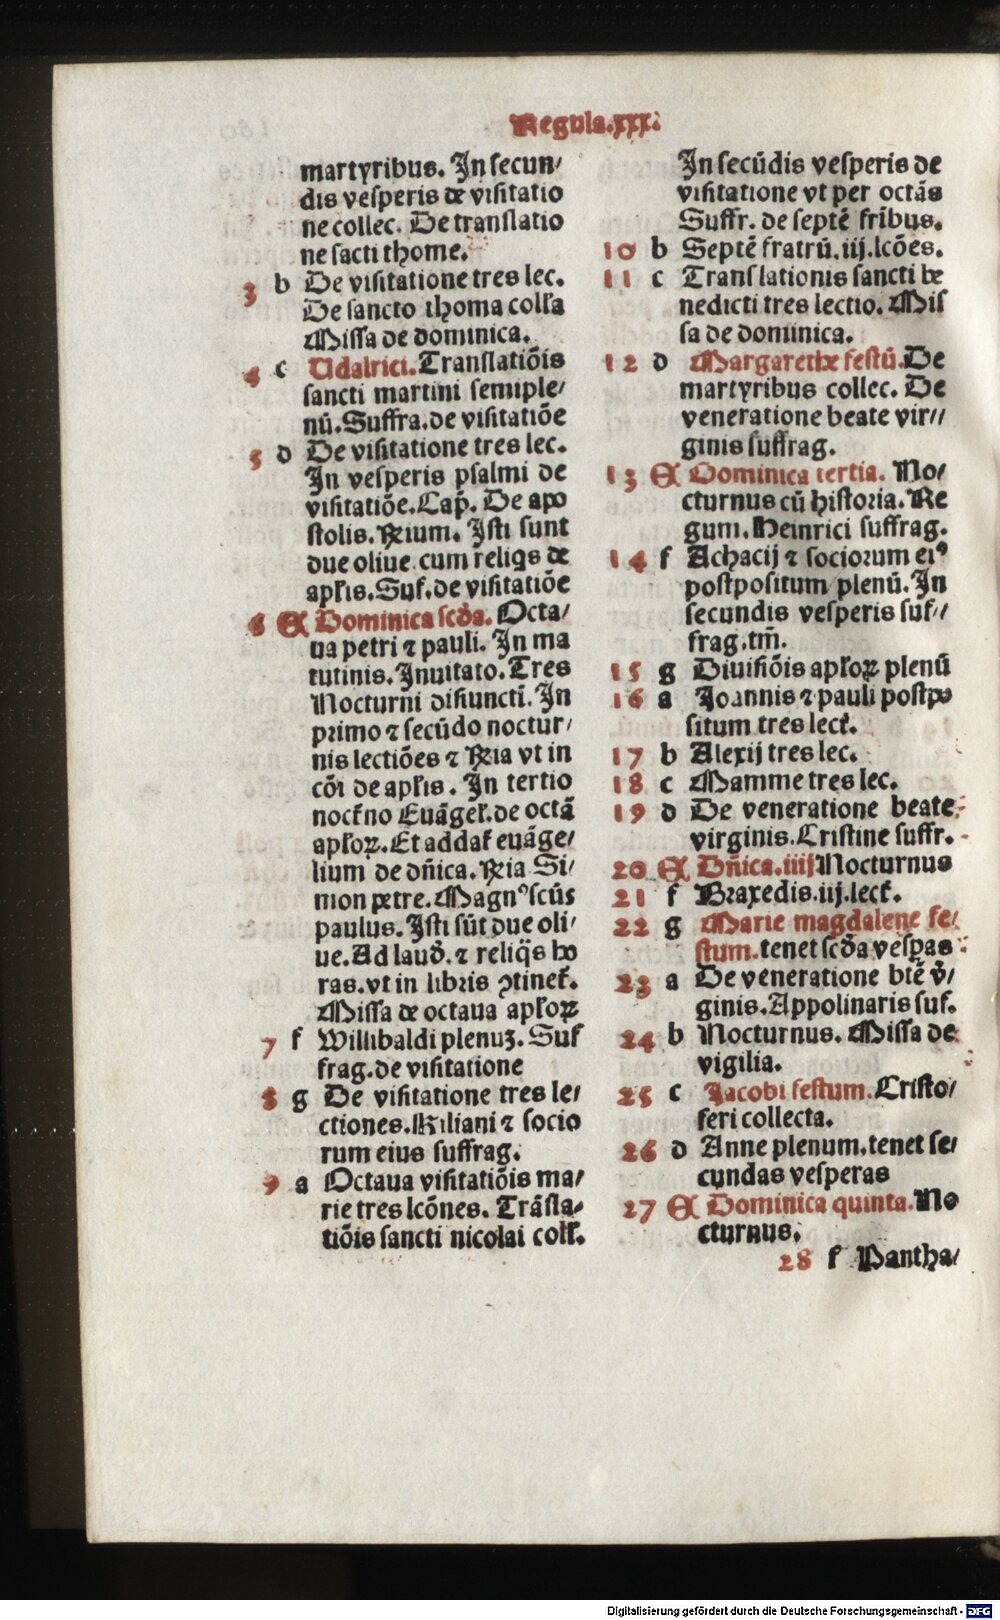 Regula.xxx.
martyribus. In secun/
dis vesperis de visitatio
ne collec. De translatio
ne sacti thome.
3 b De visitatione tres lec.
De sancto thoma coll'a
Missa de dominica.
4 c Udalrici. Translatiōis
sancti martini semiple/
nū. Suffra. de visitatiōe
5 d De visitatione tres lec.
In vesperis psalmi de
visitatiōe. Cap̄. De apo
stolis. R̃ium. Isti sunt
due oliue cum reliqs de
apl'is. Suf. de visitatiōe
6 A Dominica scd̄a. Octa/
ua petri ⁊ pauli. In ma
tutinis. Inuitato. Tres
Nocturni disiuncti. In
primo ⁊ secūdo noctur/
nis lectiōes ⁊ R̃ia vt in
cōi de apl'is. In tertio
noct'no Euāgel'. de octā
apl'oꝝ. Et addat' euāge/
lium de dn̄ica. R̃ia Si/
mon petre. Magnꝰ scūs
paulus. Isti sūt due oli/
ue. Ad laud̄. ⁊ reliq̄s ho
ras. vt in libris ꝯtinet'.
Missa de octaua apl'oꝝ
7 f Willibaldi plenuʒ. Suf
frag. de visitatione
8 g De visitatione tres le/
ctiones. Kiliani ⁊ socio
rum eius suffrag.
9 a Octaua visitatiōis ma/
rie tres lcōnes. Trāsla/
tiōis sancti nicolai coll'.
In secūdis vesperis de
visitatione vt per octās
Suffr. de septē fr̄ibus.
10 b Septē fratrū. iij. lcōes.
11 c Translationis sancti be
nedicti tres lectio. Mis
sa de dominica.
12 d Margarethe festū. De
martyribus collec. De
veneratione beate vir//
ginis suffrag.
13 A Dominica tertia. No/
cturnus cū historia. Re
gum. Heinrici suffrag.
14 f Achacij ⁊ sociorum eiꝰ
postpositum plenū. In
secundis vesperis suf//
frag. tm̄.
15 g Diuisiōis apl'oꝝ plenū
16 a Joannis ⁊ pauli postpo
situm tres lect'.
17 b Alexij tres lec.
18 c Mamme tres lec.
19 d De veneratione beate
virginis. Cristine suffr.
20 A Dn̄ica. iiij Nocturnus
21 f Braxedis. iij. lect'.
22 g Marie magdalene fe/
stum. tenet scd̄a vesꝑas
23 a De veneratione btē v̄/
ginis. Appolinaris suf.
24 b Nocturnus. Missa de
vigilia.
25 c Jacobi festum. Cristo/
feri collecta.
26 d Anne plenum. tenet se/
cundas vesperas
27 A Dominica quinta. No
cturnus.
28 f Pantha/
Digitalisierung gefördert durch die Deutsche Forschungsgemeinschaft - DFG